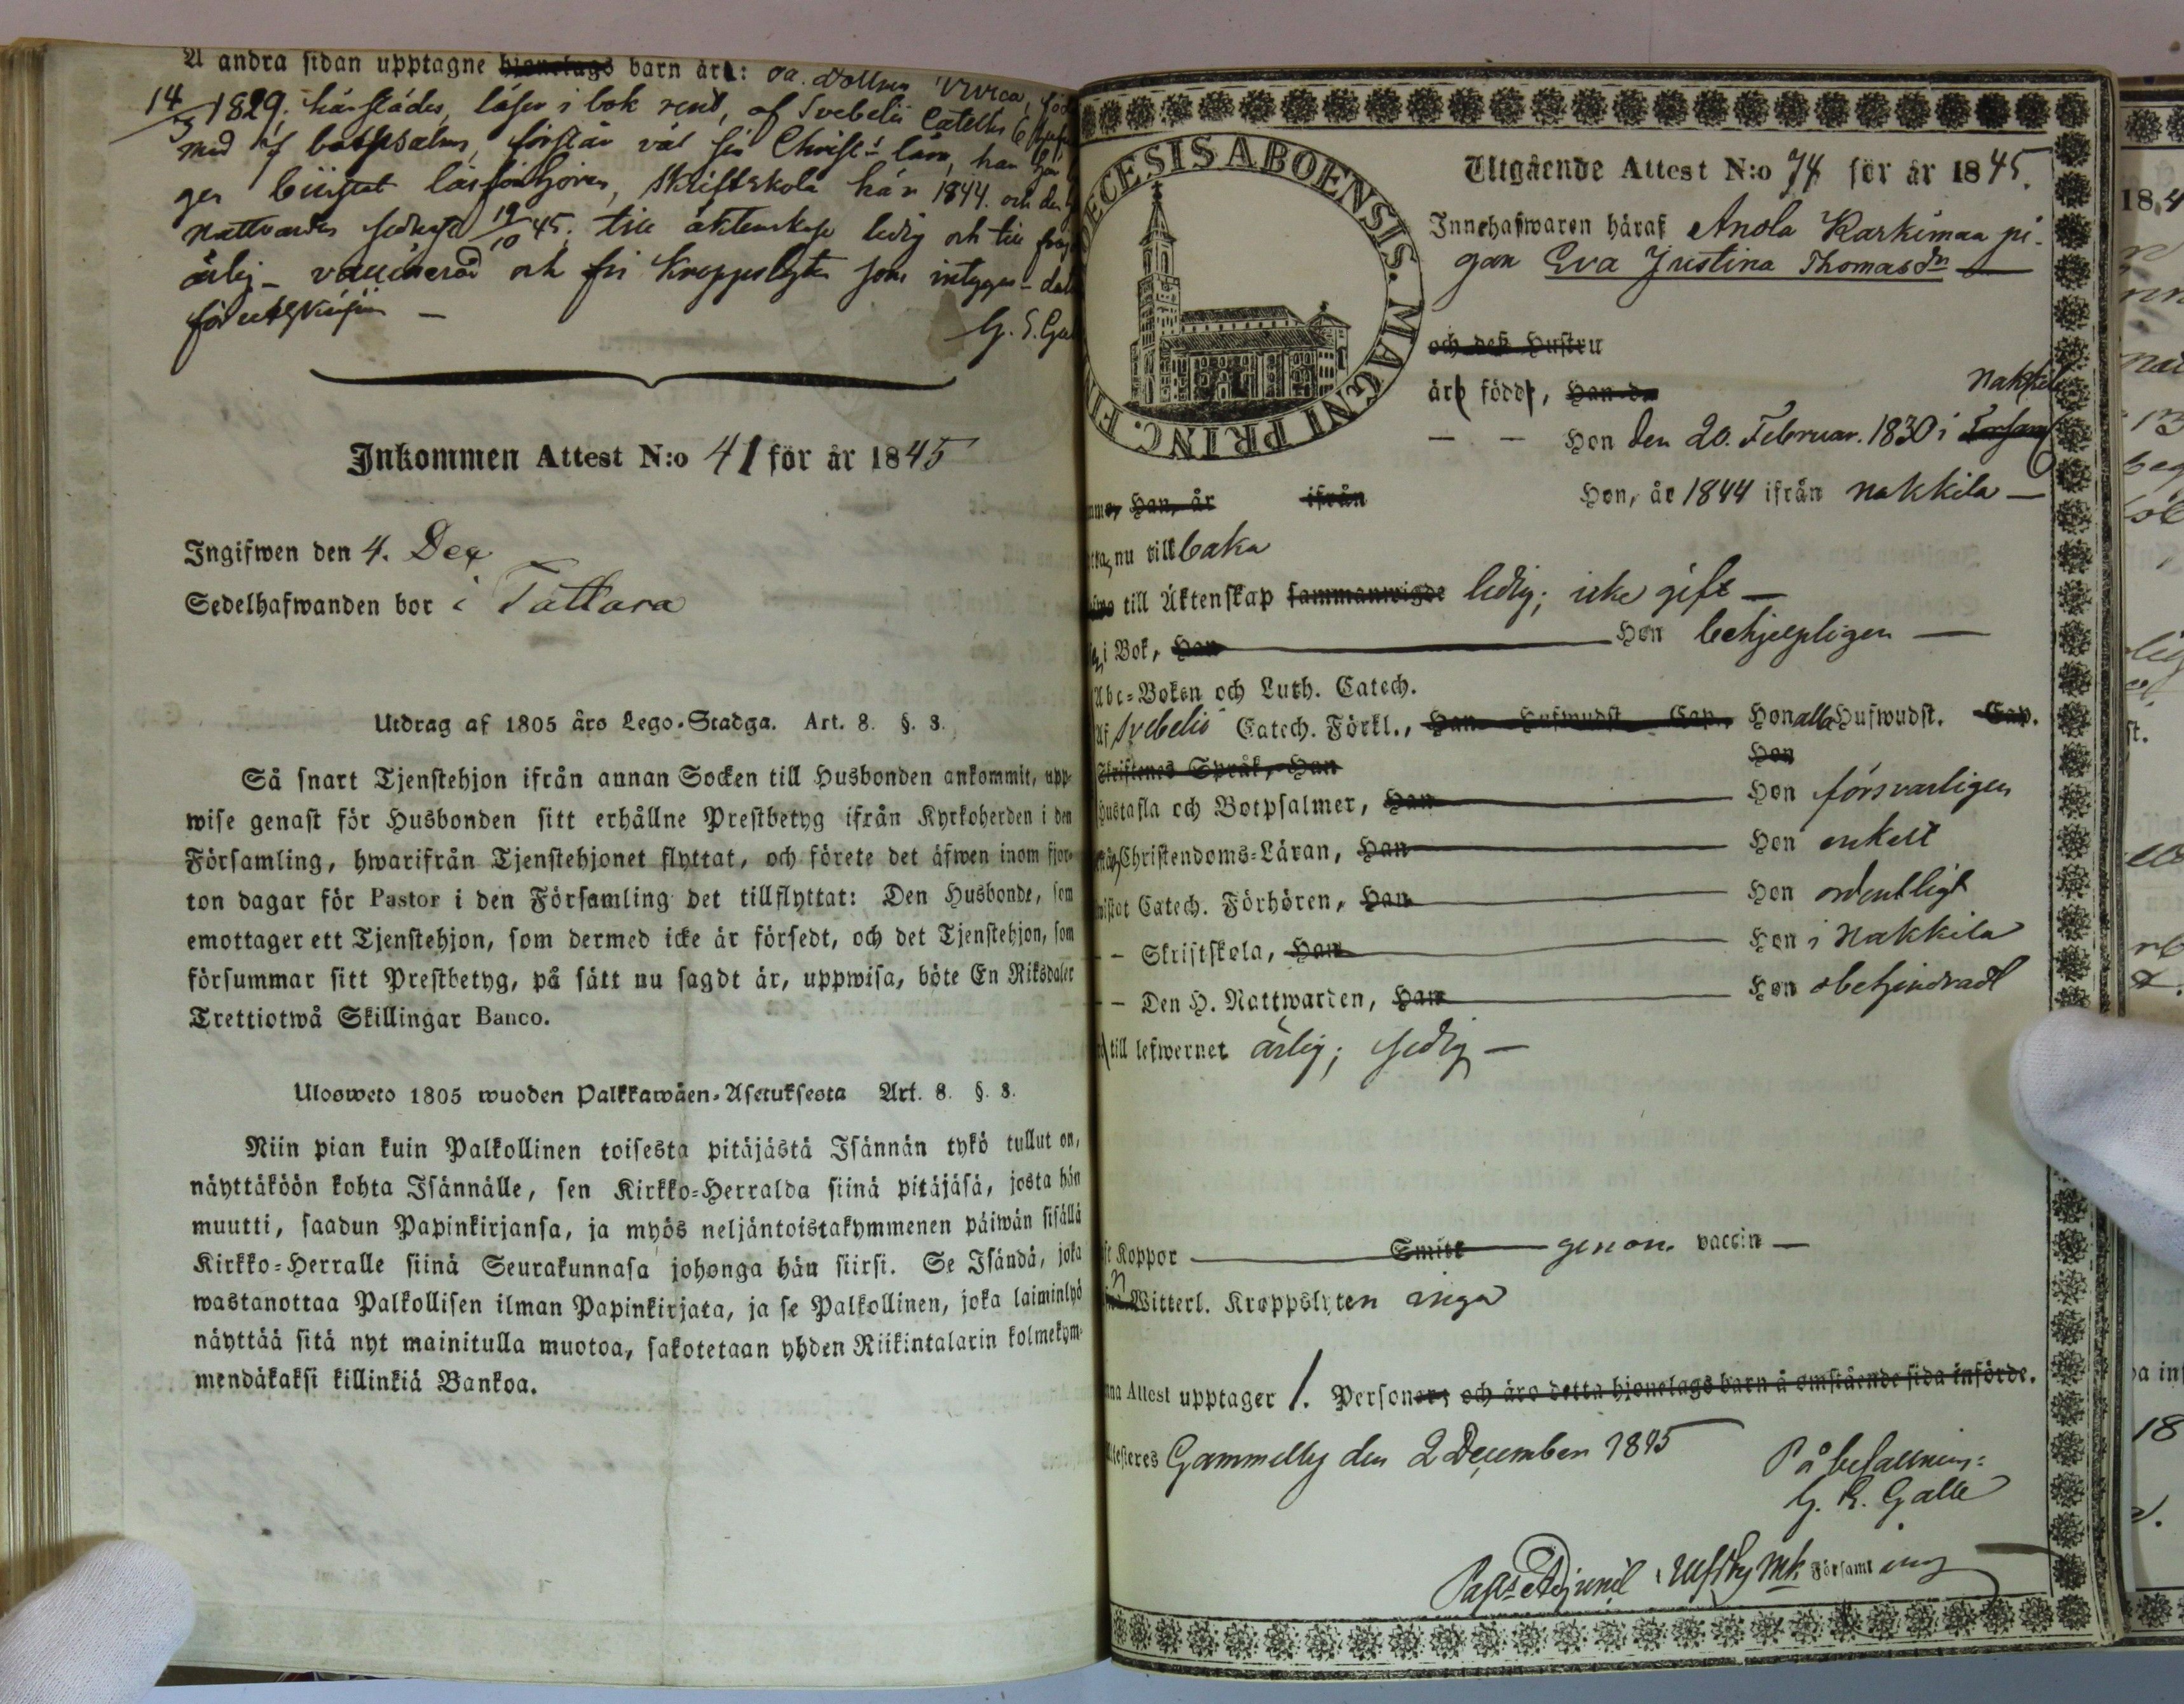 A andra sidan upptagne hjonelags barn är: oä. dottren Vivica, föd
14/5 1829. härstädes, läser i bok rent, af Svebelii Cateches
med botpsalm, förstår väl sin Christ: lära, har
ger bivistat läsförhören, Skriftskola här 1844. och den
Nattvarden sednast 19/10 45; till äktenskap ledig och till
ärlig - vaccinerad och fri kroppslyten som intygas
G. E. Ga
Inkommen Attest N:o 41 för år 1845
Ingifwen den 4. Dec
Sedelhafwanden bor i Tattara
Utdrag af 1805 års Lego-Stadga. Art. 8. §. 3.
Så snart Tjenstehjon ifrån annan Socken till Husbonden ankommit, upp-
wise genast för Husbonden sitt erhållne Prestbetyg ifrån Kyrkoherden i den
Församling, hwarifrån Tjenstehjonet flyttat, och förete det äfwen inom fjor-
ton dagar för Pastor i den Församling det tillflyttat: Den Husbonde, som
emottager ett Tjenstehjon, som dermed icke är försedt, och det Tjenstehjon, som
försummar sitt Prestbetyg, på sätt nu sagdt är, uppwisa, böte En Riksdaler
Trettiotwå Skillingar Banco.
Ulosweto 1805 wuoden Palkkawäen-Asetuksesta Art. 8. §. 3.
Niin pian kuin Palkollinen toisesta pitäjästä Isännän tykö tullut on,
näyttäköön kohta Isännälle, sen Kirkko-Herralda siinä pitäjäsä, josta hän
muutti, saadun Papinkirjansa, ja myös neljäntoistakymmenen päiwän sisällä
Kirkko-Herralle siinä Seurakunnasa johonga hän siirsi. Se Isändä, joka
wastanottaa Palkollisen ilman Papinkirjata, ja se Palkollinen, joka laiminlyö
näyttää sitä nyt mainitulla muotoa, sakotetaan yhden Riikintalarin kolmekym-
mendäkaksi killinkiä Bankoa.
DECESIS ABOENSIS. MAGNI PRINC. FIN
Utgående Attest N:o 74 för år 1845.
Innehafwaren häraf Anola Karkimaa pi-
gan Eva Justina Thomasdr
och deß Hustru
äro födde, Han d.
Nakkila
Hon den 20. Februar. 1830 i
Han, år ifrån Hon, år 1844 ifrån Nakkila
nu tillbaka
till Äktenskap sammanwigde ledig; icke gift
i Bok, Han Hon behjelpligen
Abc-Boken och Luth. Catech.
Af Svebelii Catech. Förkl., Han Hufwudst. Cap., Hon alla Hufwudst. Cap.
Skriftenes Språk, Han Hon
Hustafla och Botpsalmer, Han Hon försvarligen
Christendoms-Läran, Han Hon enkelt
Catech. Förhören, Han Hon ordentligt
- - Skriftskola, Han Hon i Nakkila
- - Den H. Nattwarden, Han Hon obehindradt
till lefwernet ärlig; sedig
Koppor Smitt genom vaccin
Witterl. Kroppslyten inga
Attest upptager 1. Personer; och äro detta hjonelags barn å omstående sida införde.
Gammelby den 2 December 1845
På befallning:
G. E. Galle
Past. Adjunct i Ulfsby Mk Församling